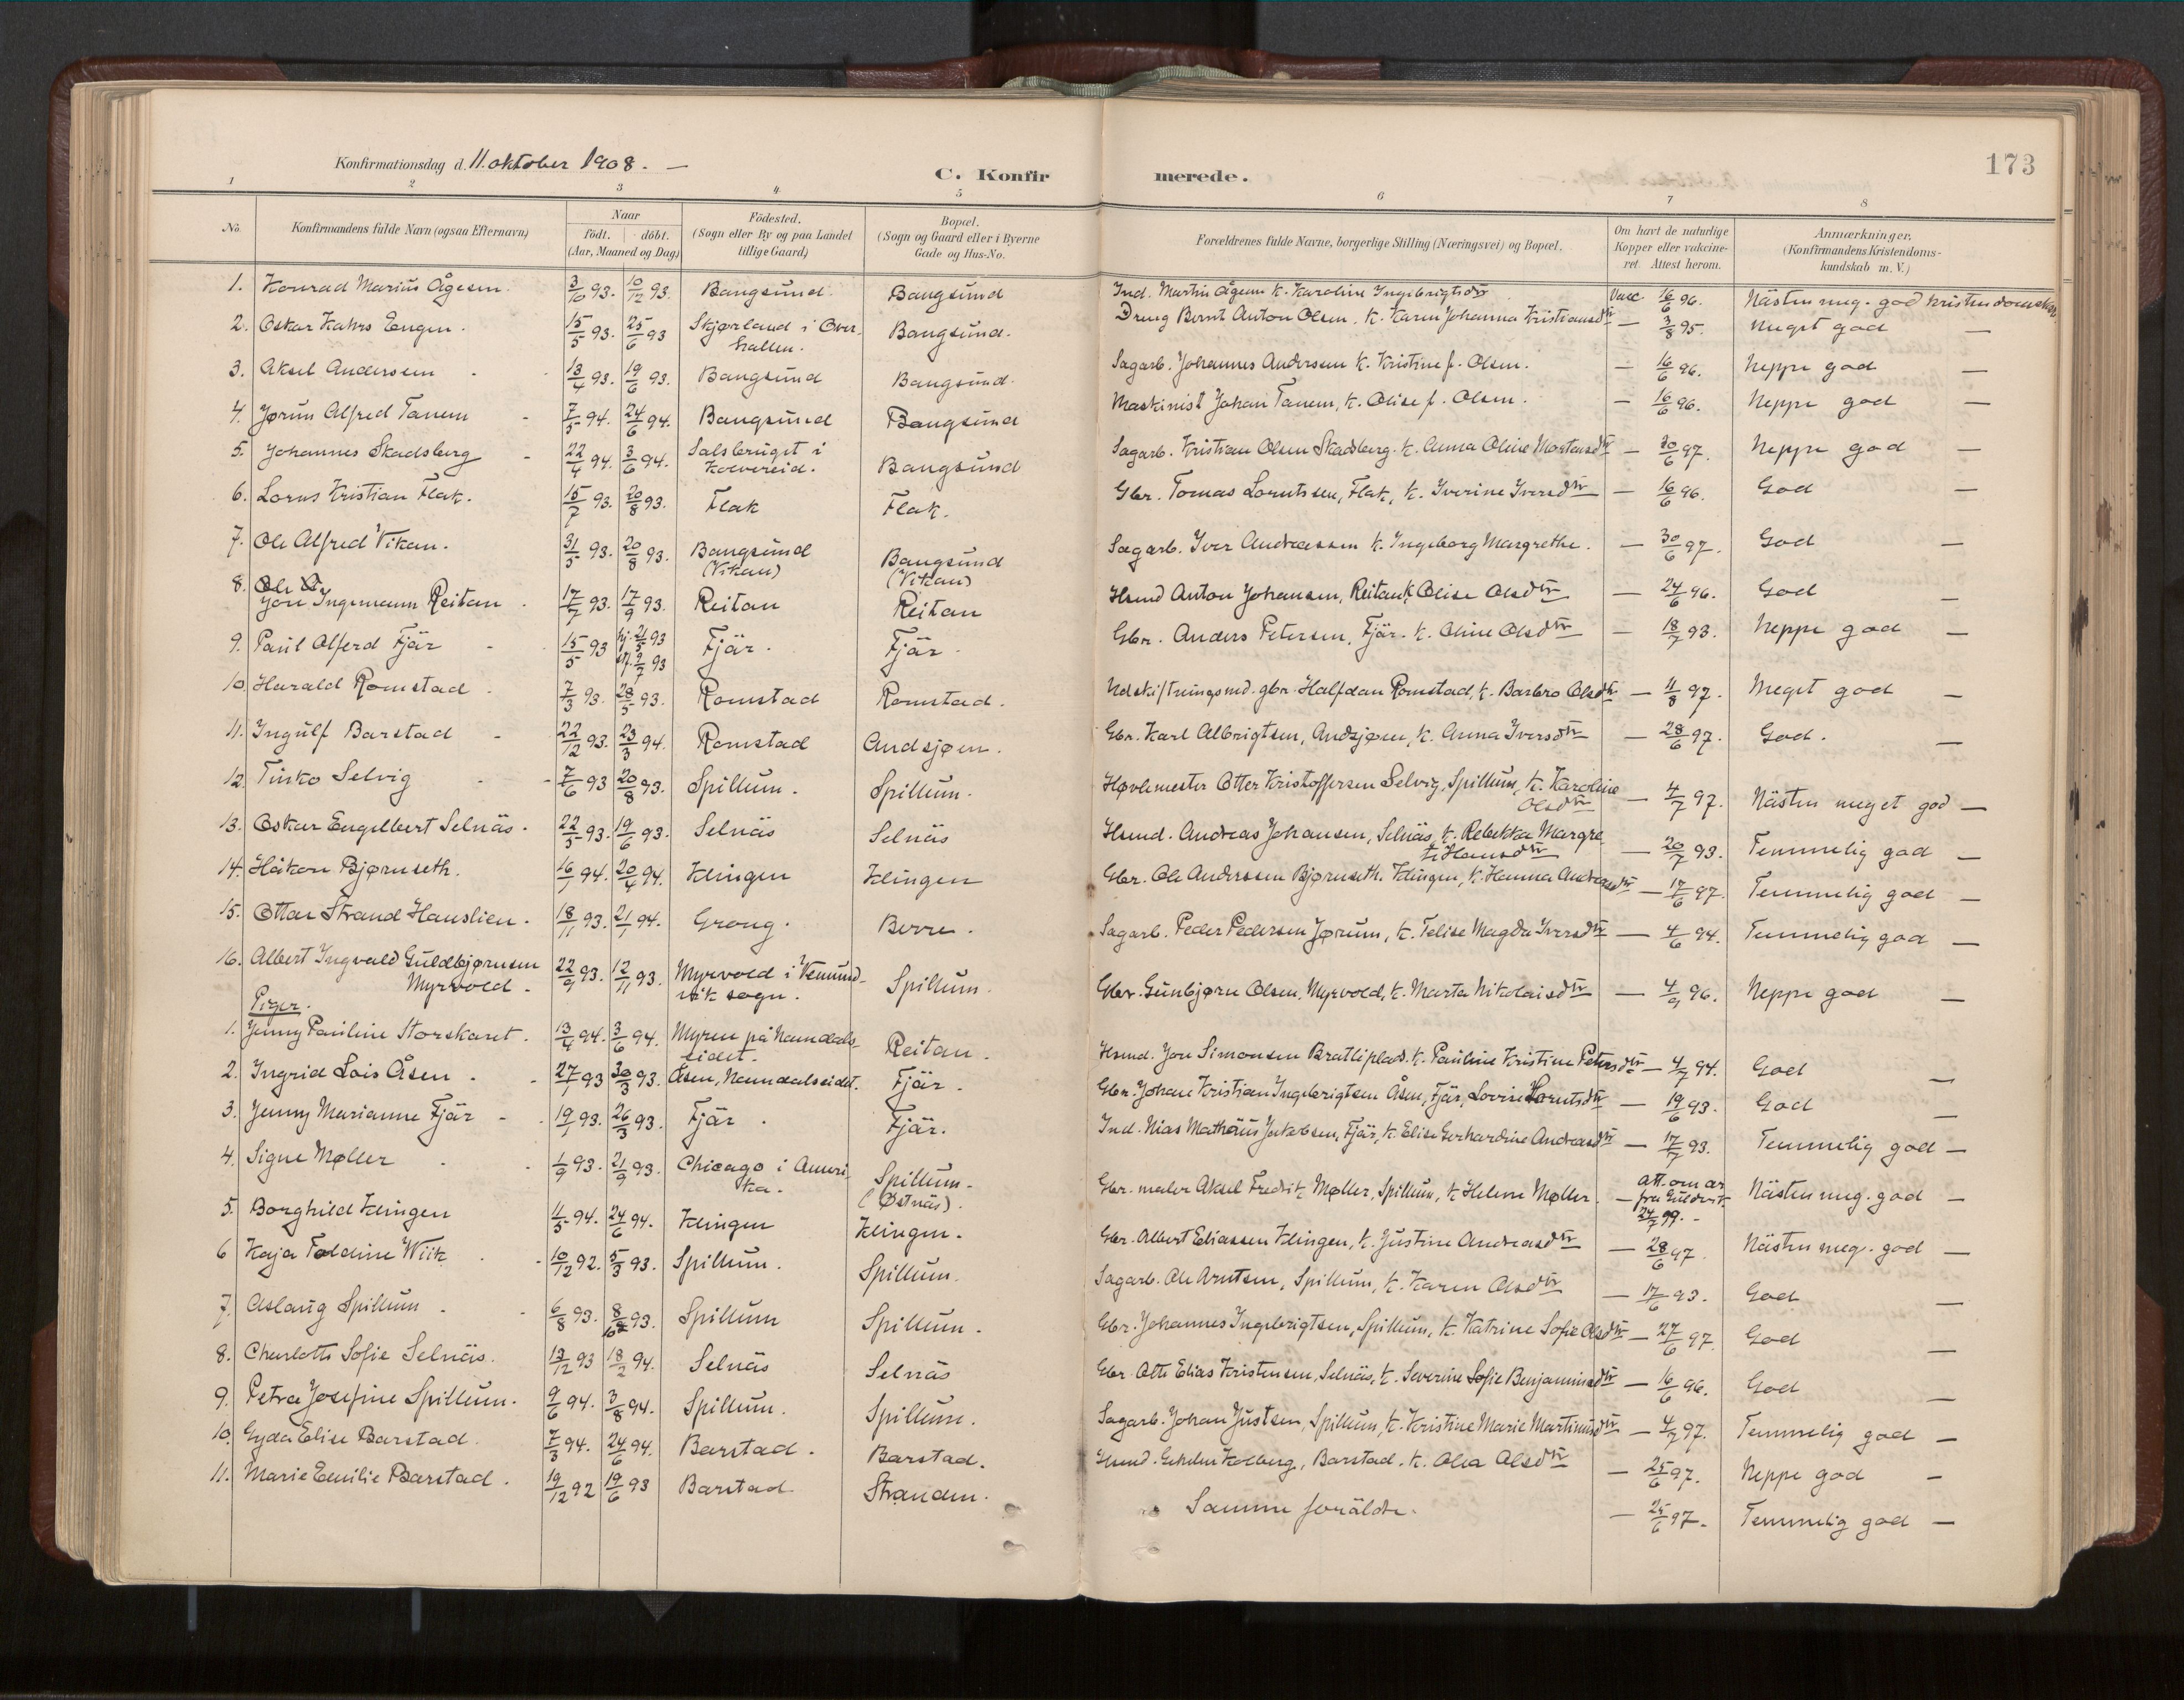 173
Konfirmationsdag d. 11. oktober 1908. —
C. Konfirmerede.
1 2 3 4 5 6 7 8
No. Konfirmandens fulde Navn (ogsaa Efternavn) Naar födt. döbt. (Aar, Maaned og Dag) Födested. (Sogn eller By og paa Landet tillige Gaard) Bopæl. (Sogn og Gaard eller i Byerne Gade og Hus-No. Forældrenes fulde Navne, borgerlige Stilling (Næringsvei) og Bopæl. Om havt de naturlige Kopper eller vakcineret. Attest herom. Anmærkninger, (Konfirmandens Kristendomskundskab m. V.)
1. Konrad Marius Ågesen. 3/10 93. 10/12 93. Bangsund. Bangsund Ind. Martin Ågesen K. Karoline Ingebrigtsdtr Vacc. 16/6 96. Nästen meg. god kristendomskp.
2. Oskar Kahrs Engen. 15/5 93. 25/6 93 Skjørland i Overhallen. Bangsund. Dreng Bernt Anton Olsen. K. Karen Johanna Kristiansdtr — 3/8 95. Meget god —
3. Aksel Andersen 13/4 93. 19/6 93. Bangsund Bangsund. Sagarb. Johannes Andersen K. Kristine f. Olsen. — 16/6 96. Neppe god —
4. Jørun Alfred Tanem 7/5 94. 24/6 94. Bangsund Bangsund Maskinist Johan Tanem, K. Olise f. Olsen. — 16/6 96. Neppe god —
5. Johannes Skadsberg 22/4 94. 3/6 94. Salsbruget i Kolvereid. Bangsund Sagarb. Kristian Olsen Skadsberg. K. Anna Oline Mortensdtr — 30/6 97. Neppe god —
6. Lorns Kristian Flak. 15/7 93. 20/8 93. Flak Flak. Gbr. Tomas Lorntssen, Flak, K. Iverine Iversdtr — 16/6 96. God —
7. Ole Alfred Vikan. 31/5 93. 20/8 93. Bangsund (Vikan) Bangsund (Vikan) Sagarb. Iver Andreassen K. Ingeborg Margrethe. — 30/6 97. God —
8. Jon Ingemann Reitan 17/7 93. 17/9 93. Reitan Reitan Hsmd Anton Johansen, Reitan K. Olise Olsdtr — 24/6 96. God —
9. Paul Alferd Fjär 15/5 93 hj. 21/5 93 st. 9/7 93 Fjär. Fjär. Gbr. Anders Petersen, Fjär. K. Oline Olsdtr — 18/7 93. Neppe god —
10. Harald Romstad. 7/3 93. 28/5 93. Romstad Romstad. Udskiftningsmd. gbr. Halfdan Romstad, K. Barbro Olsdtr — 11/8 97. Meget god —
11. Ingulf Barstad 22/12 93. 23/3 94. Romstad Andsjøen. Gbr. Karl Albrigtsen, Andsjøen, K. Anna Iversdtr — 28/6 97. God. —
12. Tinko Selvig 7/6 93 20/8 93. Spillum. Spillum. Høvlemester Otter Kristoffersen Selvig, Spillum, K. Karoline Olsdtr — 4/7 97. Nästen meget god —
13. Oskar Engelbert Selnäs. 22/5 93. 19/6 93. Selnäs Selnäs Hsmd. Andreas Johansen, Selnäs, K. Rebekka Margrete Hansdtr — 20/7 93. Temmelig god —
14. Håkon Bjørnseth. 16/1 94. 20/4 94. Klingen Klingen Gbr. Ole Anderssen Bjørnseth. Klingen, K. Hanna Andreasdtr — 17/6 97. Temmelig god —
15. Ottar Strand Hauslien. 18/11 93. 21/1 94. Grong. Berre. Sagarb. Peder Pedersen Jørum, K. Telise Magda Iversdtr — 4/6 94. Temmelig god —
16. Albert Ingvald Guldbjørnsen Myrvold. 22/9 93. 12/11 93. Myrvold i Vemundvik sogn. Spillum. Gbr. Gunbjørn Olsen, Myrvold, K. Marta Nikolaisdtr — 4/9 96. Neppe god —
Piger.
1. Jenny Pauline Storskaret. 13/4 94. 3/6 94. Myren på Namdalseidet. Reitan. Hsmd. Jon Simonsen Bratliplads. K. Pauline Kristine Petersdtr — 4/7 94. God —
2. Ingrid Lois Åsen. 27/1 93 30/3 93. Åsen, Namdalseidet. Fjär. Gbr. Johan Kristian Ingebrigtsen Åsen, Fjär, Lovise Lorntsdtr — 19/6 93. God —
3. Jenny Marianne Fjär 19/1 93. 26/3 93. Fjär. Fjär. Ind. Nias Mathäus Jakobsen, Fjär, K. Elise Gerhardine Andreasdtr — 17/7 93. Temmelig god —
4. Signe Møller 1/9 93. 21/9 93. Chicago i Amerika. Spillum. (Østnäs). Gbr. maler Aksel Fredrik Møller, Spillum, K Helene Møller. att. om ar — 24/7 99. Nästen meg. god —
5. Borghild Klingen 11/5 94. 24/6 94. Klingen Klingen. Gbr. Albert Eliassen Klingen, K. Justine Andreasdtr — 28/6 97. Nästen meg. god —
6 Kaja Toldine Wiik 10/12 92. 5/3 93. Spillum. Spillum. Sagarb. Ole Arntsen, Spillum, K. Karen Olsdtr — 17/6 93. God —
7. Aslaug Spillum 6/8 93. 8/10 93. Spillum Spillum. Gbr. Johannes Ingebrigtsen, Spillum, K. Katrine Sofie Olsdtr — 27/6 97. God —
8. Charlotte Sofie Selnäs. 13/12 93 18/2 94. Selnäs Selnäs Gbr. Otto Elias Kristensen, Selnäs, K. Severine Sofie Benjaminsdtr — 16/6 96. God —
9. Petra Josefine Spillum. 9/6 94. 3/8 94. Spillum. Spillum. Sagarb. Johan Justsen, Spillum, K. Kristine Marie Martinusdtr — 4/7 97. Temmelig god —
10. Gyda Elise Barstad. 7/3 94. 24/6 94. Barstad. Barstad. Hsmd. Kolberg, Barstad. K. Olea Olsdtr — 25/6 97. Neppe god —
11. Marie Emilie Barstad. 19/12 92 19/6 93 Barstad. Stranden. Samme foräldre. — 25/6 97. Temmelig god —